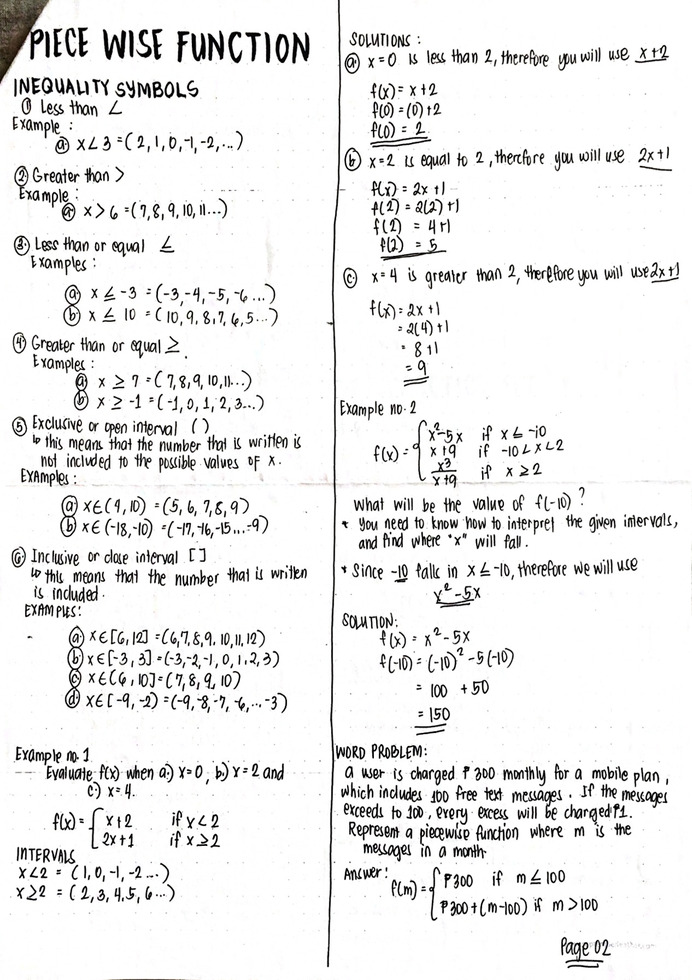 PIECE WISE FUNCTION
INEQUALITY SYMBOLS
① Less than <
Example :
ⓐ x < 3 = ( 2, 1, 0, -1, -2, ...)
② Greater than >
Example :
ⓐ x > 6 = (7, 8, 9, 10, 11...)
③ Less than or equal ≤
Examples :
ⓐ x ≤ -3 = (-3, -4, -5, -6 ...)
ⓑ x ≤ 10 = ( 10, 9, 8, 7, 6, 5...)
④ Greater than or equal ≥.
Examples :
ⓐ x ≥ 7 = ( 7, 8, 9, 10, 11...)
ⓑ x ≥ -1 = (-1, 0, 1, 2, 3...)
⑤ Exclusive or open interval ( )
↳ this means that the number that is written is
not included to the possible values of x.
EXAMPLES:
ⓐ x∈(4, 10) = (5, 6, 7, 8, 9)
ⓑ x∈ (-18, -10) = (-17, -16, -15...-9)
⑥ Inclusive or close interval [ ]
↳ this means that the number that is written
is included.
EXAMPLES:
ⓐ x∈[6, 12] = (6, 7, 8, 9, 10, 11, 12)
ⓑ x∈[-3, 3] = (-3, -2, -1, 0, 1, 2, 3)
ⓒ x∈(6, 10] = (7, 8, 9, 10)
ⓓ x∈[-9, -2) = (-9, -8, -7, -6, ... -3)
Example no. 1
Evaluate f(x) when a.) x=0, b.) x=2 and
c.) x=4.
f(x) = { x+2 if x<2
2x+1 if x≥2
INTERVALS
x<2 = (1, 0, -1, -2 ...)
x≥2 = ( 2, 3, 4, 5, 6 ...)
SOLUTIONS :
ⓐ x=0 is less than 2, therefore you will use x+2
f(x) = x+2
f(0) = (0)+2
f(0) = 2
ⓑ x=2 is equal to 2, therefore you will use 2x+1
f(x) = 2x+1
f(2) = 2(2)+1
f(2) = 4+1
f(2) = 5
ⓒ x=4 is greater than 2, therefore you will use 2x+1
f(x) = 2x+1
= 2(4)+1
= 8+1
= 9
Example no. 2
f(x) = { x²-5x if x ≤ -10
x+9 if -10 < x < 2
x³/x+9 if x ≥ 2
What will be the value of f(-10) ?
* You need to know how to interpret the given intervals,
and find where "x" will fall.
* Since -10 falls in x ≤ -10, therefore we will use
x² - 5x
SOLUTION:
f(x) = x² - 5x
f(-10) = (-10)² - 5(-10)
= 100 + 50
= 150
WORD PROBLEM:
a user is charged ₱300 monthly for a mobile plan,
which includes 100 free text messages. If the messages
exceeds to 100, every excess will be charged ₱1.
Represent a piecewise function where m is the
messages in a month.
Answer:
f(m) = { ₱300 if m ≤ 100
₱300+(m-100) if m > 100
Page 02